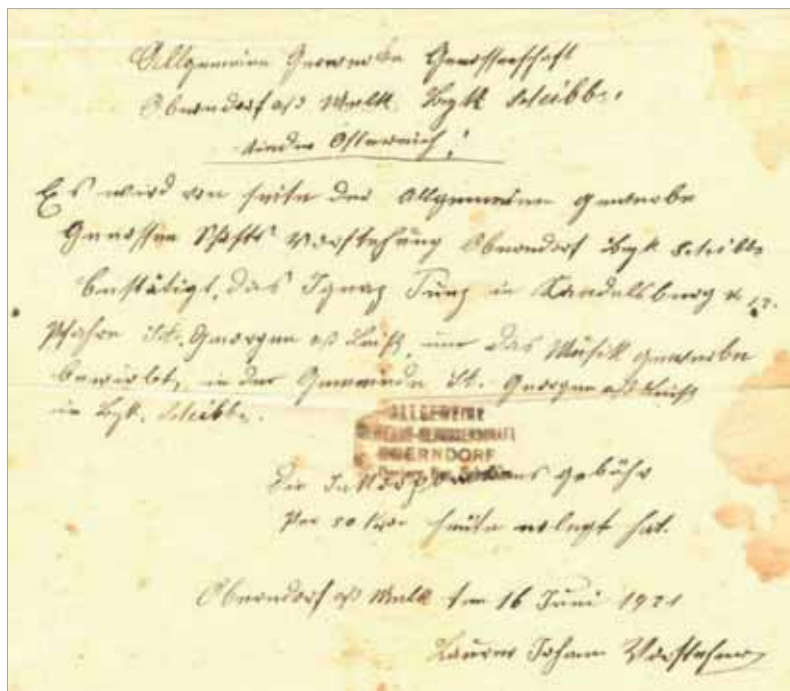 Allgemeine Gewerbe Genossenschaft
Oberndorf a/d Melk Bezk Scheibbs.
Nieder Österreich!
Es wird von seite der Allgemeinen gewerbe
Genossen Schfts Vorstehung Oberndorf Bezk Scheibbs
bestätigt, das Ignaz in Kandelsberg
Pfahre St. Georgen a/d Leiß, um das Musik gewerbe
bewirbt, in der Gemeinde St. Georgen a/d Leiß
in Bzk. Scheibbs.
ALLGEMEINE
GEWERBE-GENOSSENSCHAFT
OBERNDORF
Die gebühr
Per 50 heute erlegt hat.
Oberndorf a/d Melk am 16 Juni 1921
Johann Vorsteher